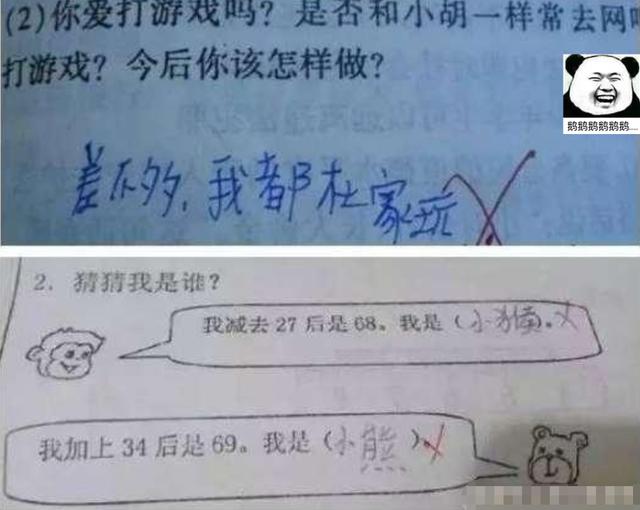 (2)你爱打游戏吗？是否和小胡一样常去网吧
打游戏？今后你该怎样做？
鹅鹅鹅鹅鹅鹅....
差不多，我都在家玩
2. 猜猜我是谁？
我减去27后是68。我是(小猴)。
我加上34后是69。我是(小熊)。